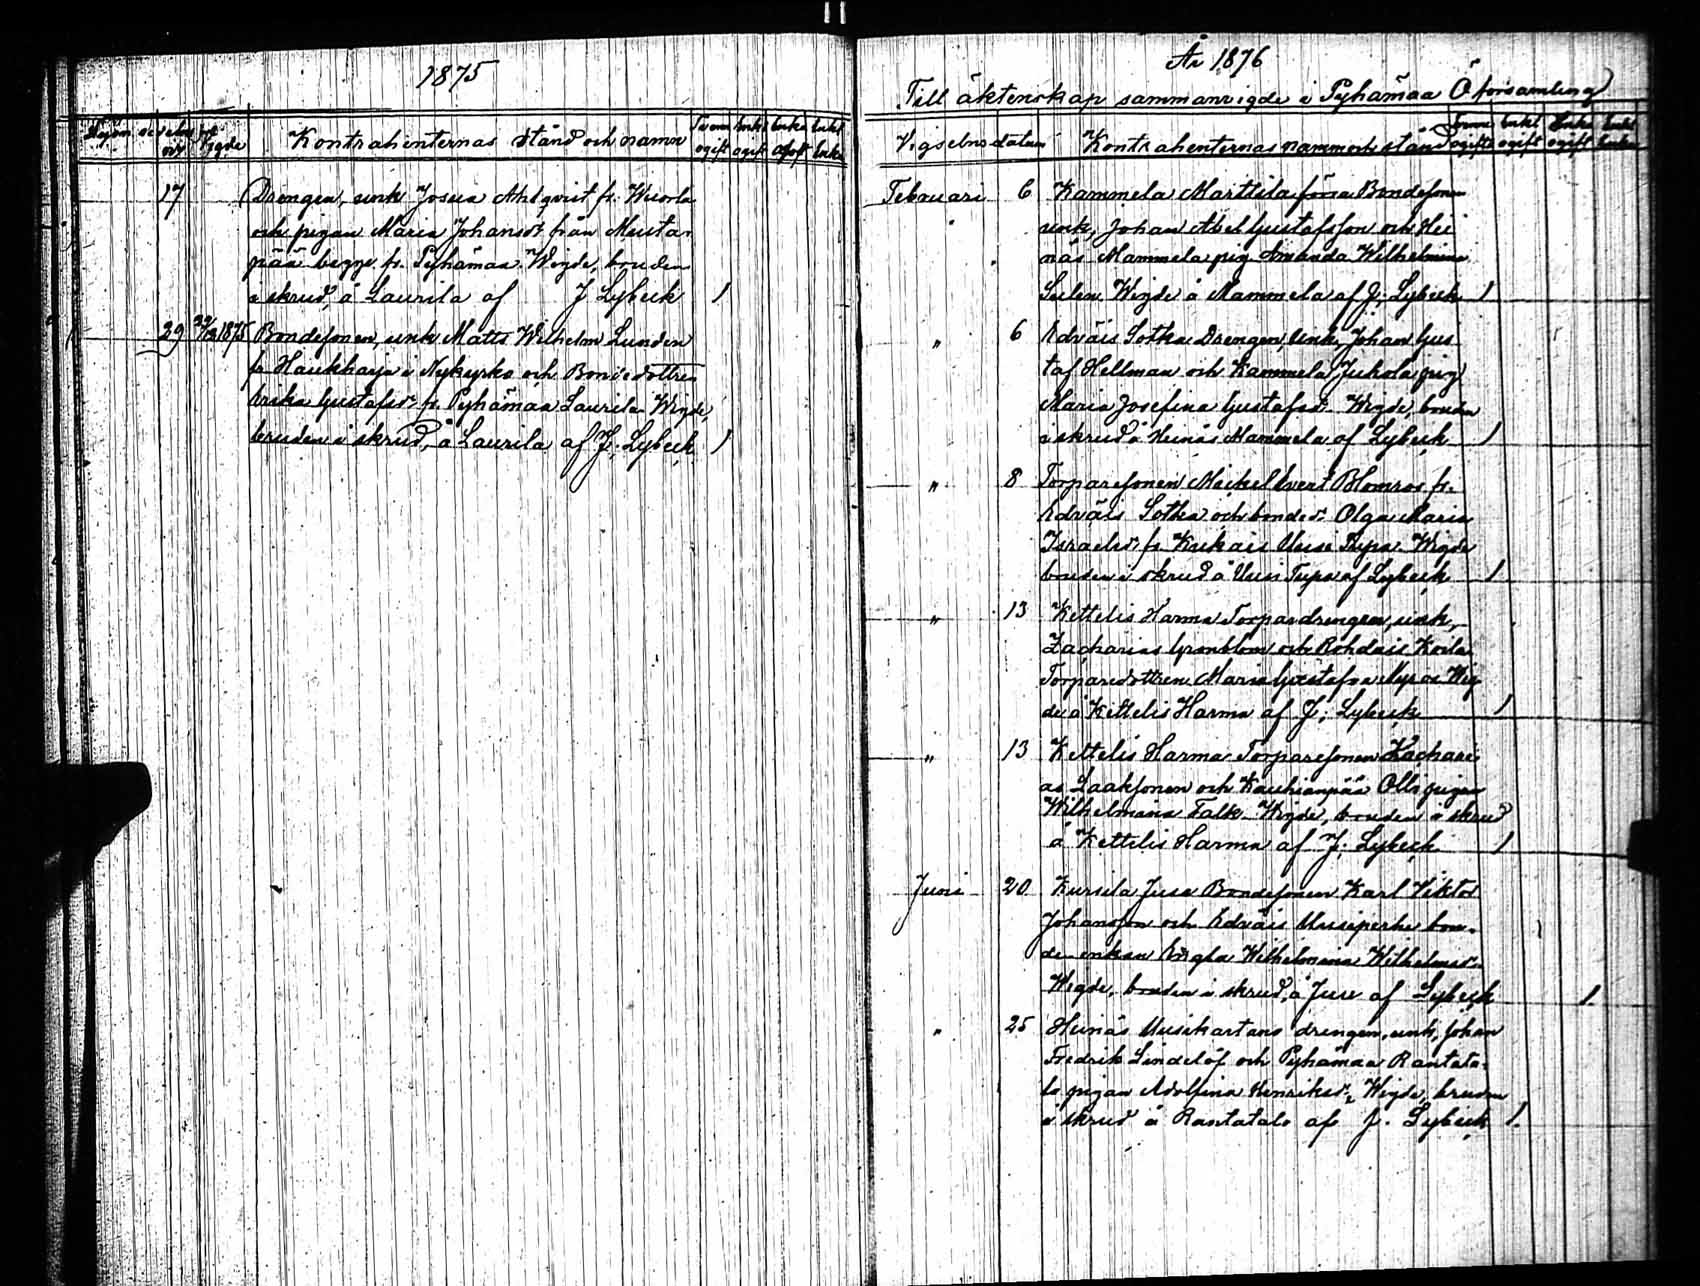 1875
Kontrahenternas stånd och namn
17 Drengen, unk Josua Ahlqvist fr. Wuorla
och pigan Maria Johansdr från Musta-
pää begge fr. Pyhämaa Wigde, bruden
i skrud, å Laurila af J Lybeck 1
29 1875 Bondesonen, unk Matts Wilhelm Lunden
fr Haukkarja i Nykyrko och Bondedottren
Erika Gustafsdr fr. Pyhämaa Laurila Wigde,
bruden i skrud, å Laurila af J. Lybeck 1
År 1876
Till äktenskap sammanvigde i Pyhämaa Ö församling
Vigselns datum Kontrahenternas namn och stånd
Februari 6 Kammela Marttila Bondesonen
unk, Johan Abel Gustafsson och Hei
näs Mammela pig Amanda Wilhelmina
Wigde å Mammela af J. Lybeck 1
" 6 Edväis Sotka Drengen, Unk, Johan Gus
taf Hellman och Kammela Juhola pig
Maria Josefina Gustafsdr. Wigde, bruden
i skrud å Heinäs Mammela af Lybeck 1
" 8 Torparesonen Mickel Evert Blomros fr.
Edväis Sotka och bondedr. Olga Maria
Israelsdr. fr Kukais Uusi Tupa Wigde
bruden i skrud å Uusi Tupa af Lybeck 1
" 13 Kettelis Harma Torparedrengen, unk,
Zacharias Grönblom och Rohdais Koila
Torparedottren Maria Gustafva Wig
de å Kettelis Harma af J. Lybeck 1
" 13 Kettelis Harma Torparesonen Zachari
as Laaksonen och Kauhianpää Olli pigan
Wilhelmina Falk Wigde, bruden i skrud
å Kettelis Harma af J. Lybeck 1
Juni 20 Kursila Juse Bondesonen Karl Viktor
Johansson och Edväis Uusiperhe bon-
de enkan Wilhelmina Wilhelmsdr.
Wigde, bruden i skrud, å Juse af Lybeck 1
" 25 Heinäs Uusikartano drengen, unk, Johan
Fredrik Lindelöf och Pyhämaa Rantata-
lo pigan Adolfina Henriksdr. Wigde, bruden
i skrud å Rantatalo af J. Lybeck 1.